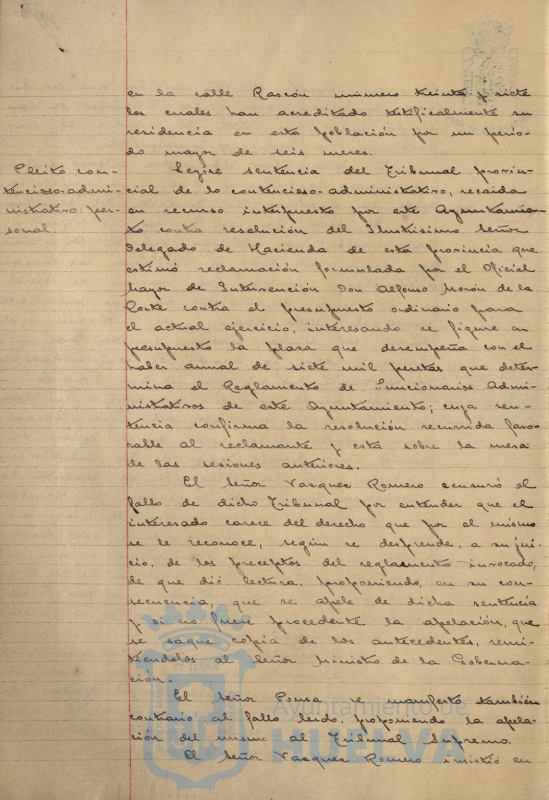 en la calle Rascón número treinta y siete
los cuales han acreditado testificalmente su
residencia en esta población por un perío-
do mayor de seis meses.
Pleito con-
tencioso-admi-
nistrativo: per-
sonal
Leyóse sentencia del Tribunal provin-
cial de lo contencioso-administrativo, recaida
en recurso interpuesto por este Ayuntamien-
to contra resolución del Ilustrísimo Señor
Delegado de Hacienda de esta provincia que
estimó reclamación formulada por el Oficial
mayor de Intervención Don Alfonso Morón de la
Corte contra el presupuesto ordinario para
el actual ejercicio, interesando se figure en
presupuesto la plaza que desempeña con el
haber anual de siete mil pesetas que deter-
mina el Reglamento de Funcionarios Admi-
nistrativos de este Ayuntamiento; cuya sen-
tencia confirma la resolución recurrida favo-
rable al reclamante y está sobre la mesa
de las sesiones anteriores.
El Señor Vazquez Romero censuró el
fallo de dicho Tribunal por entender que el
interesado carece del derecho que por el mismo
se le reconoce, según se desprende, a su jui-
cio, de los preceptos del reglamento invocado,
de que dió lectura, proponiendo, en su con-
secuencia, que se apele de dicha sentencia
y si no fuere procedente la apelación, que
se saque copia de los antecedentes, remi-
tiendolos al Señor Ministro de la Goberna-
ción.
El Señor Ponsa se manifestó también
contrario al fallo leido, proponiendo la apela-
ción del mismo al Tribunal Supremo.
El Señor Vazquez Romero insistió en
Ayuntamiento de
HUELVA